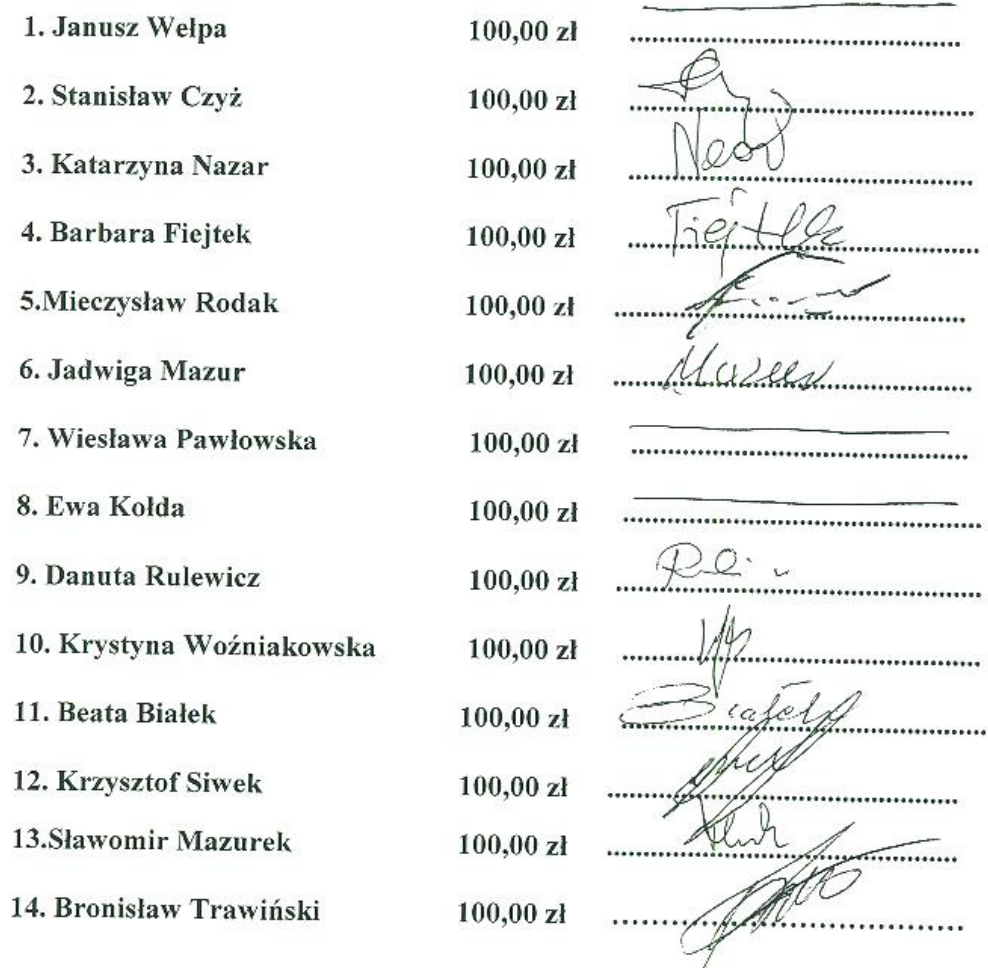 1. Janusz Wełpa 100,00 zł ....................
2. Stanisław Czyż 100,00 zł ....................
3. Katarzyna Nazar 100,00 zł ....................
4. Barbara Fiejtek 100,00 zł Fiejtek ....................
5.Mieczysław Rodak 100,00 zł ....................
6. Jadwiga Mazur 100,00 zł Mazur ....................
7. Wiesława Pawłowska 100,00 zł ....................
8. Ewa Kołda 100,00 zł ....................
9. Danuta Rulewicz 100,00 zł ....................
10. Krystyna Woźniakowska 100,00 zł ....................
11. Beata Białek 100,00 zł Białek ....................
12. Krzysztof Siwek 100,00 zł ....................
13.Sławomir Mazurek 100,00 zł ....................
14. Bronisław Trawiński 100,00 zł ....................